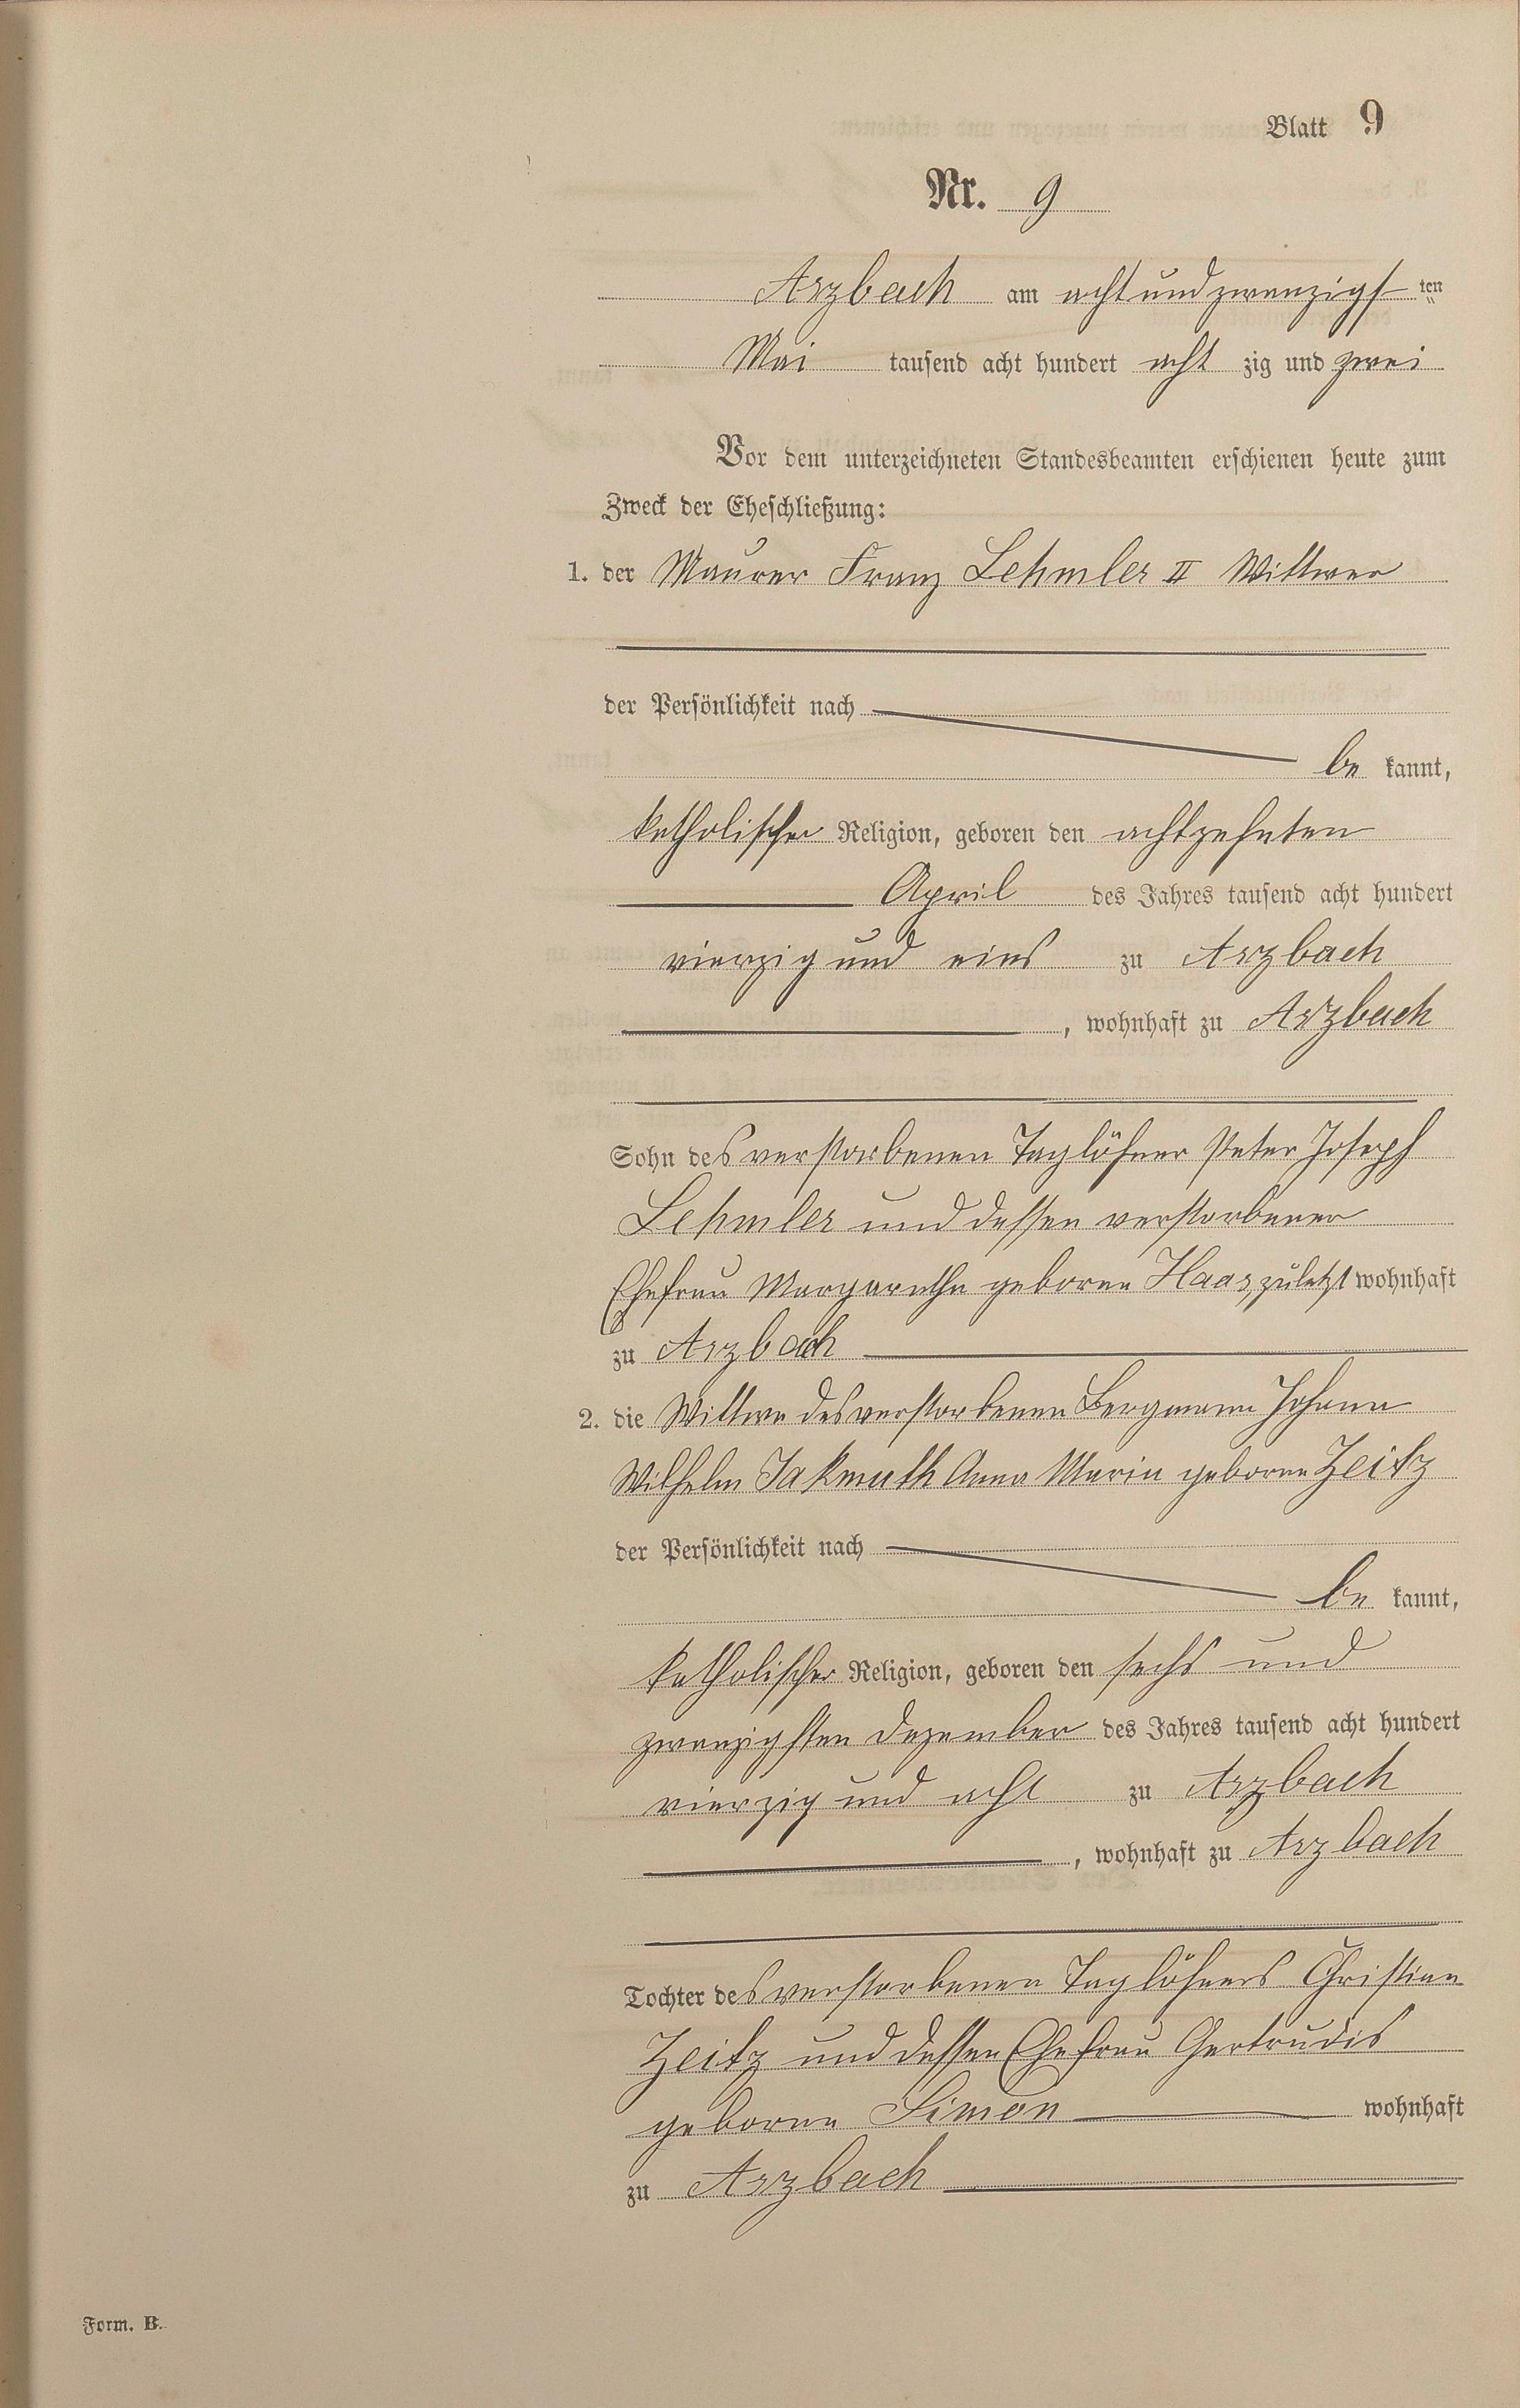 Blatt 9
Nr. 9
Arzbach am acht und zwanzigsten
Mai tausend acht hundert acht zig und zwei
Vor dem unterzeichneten Standesbeamten erschienen heute zum
Zweck der Eheschließung:
1. der Maurer Franz Lehmler II Wittwer
der Persönlichkeit nach
be kannt,
katholischer Religion, geboren den achtzehnten
April des Jahres tausend acht hundert
vierzig und eins zu Arzbach
, wohnhaft zu Arzbach
Sohn des verstorbenen Taglöhner Peter Joseph
Lehmler und dessen verstorbener
Ehefrau Margarethe geborne Haas, zuletzt wohnhaft
zu Arzbach
2. die Wittwe des verstorbenen Bergmann Johann
Wilhelm Jakmuth Anna Maria geborne Zeitz
der Persönlichkeit nach
be kannt,
katholischer Religion, geboren den sechs und
zwanzigsten Dezember des Jahres tausend acht hundert
vierzig und acht zu Arzbach
, wohnhaft zu Arzbach
Tochter des verstorbenen Taglöhners Christian
Zeitz und dessen Ehefrau Gertrudis
geborne Simon wohnhaft
zu Arzbach
Form. B.